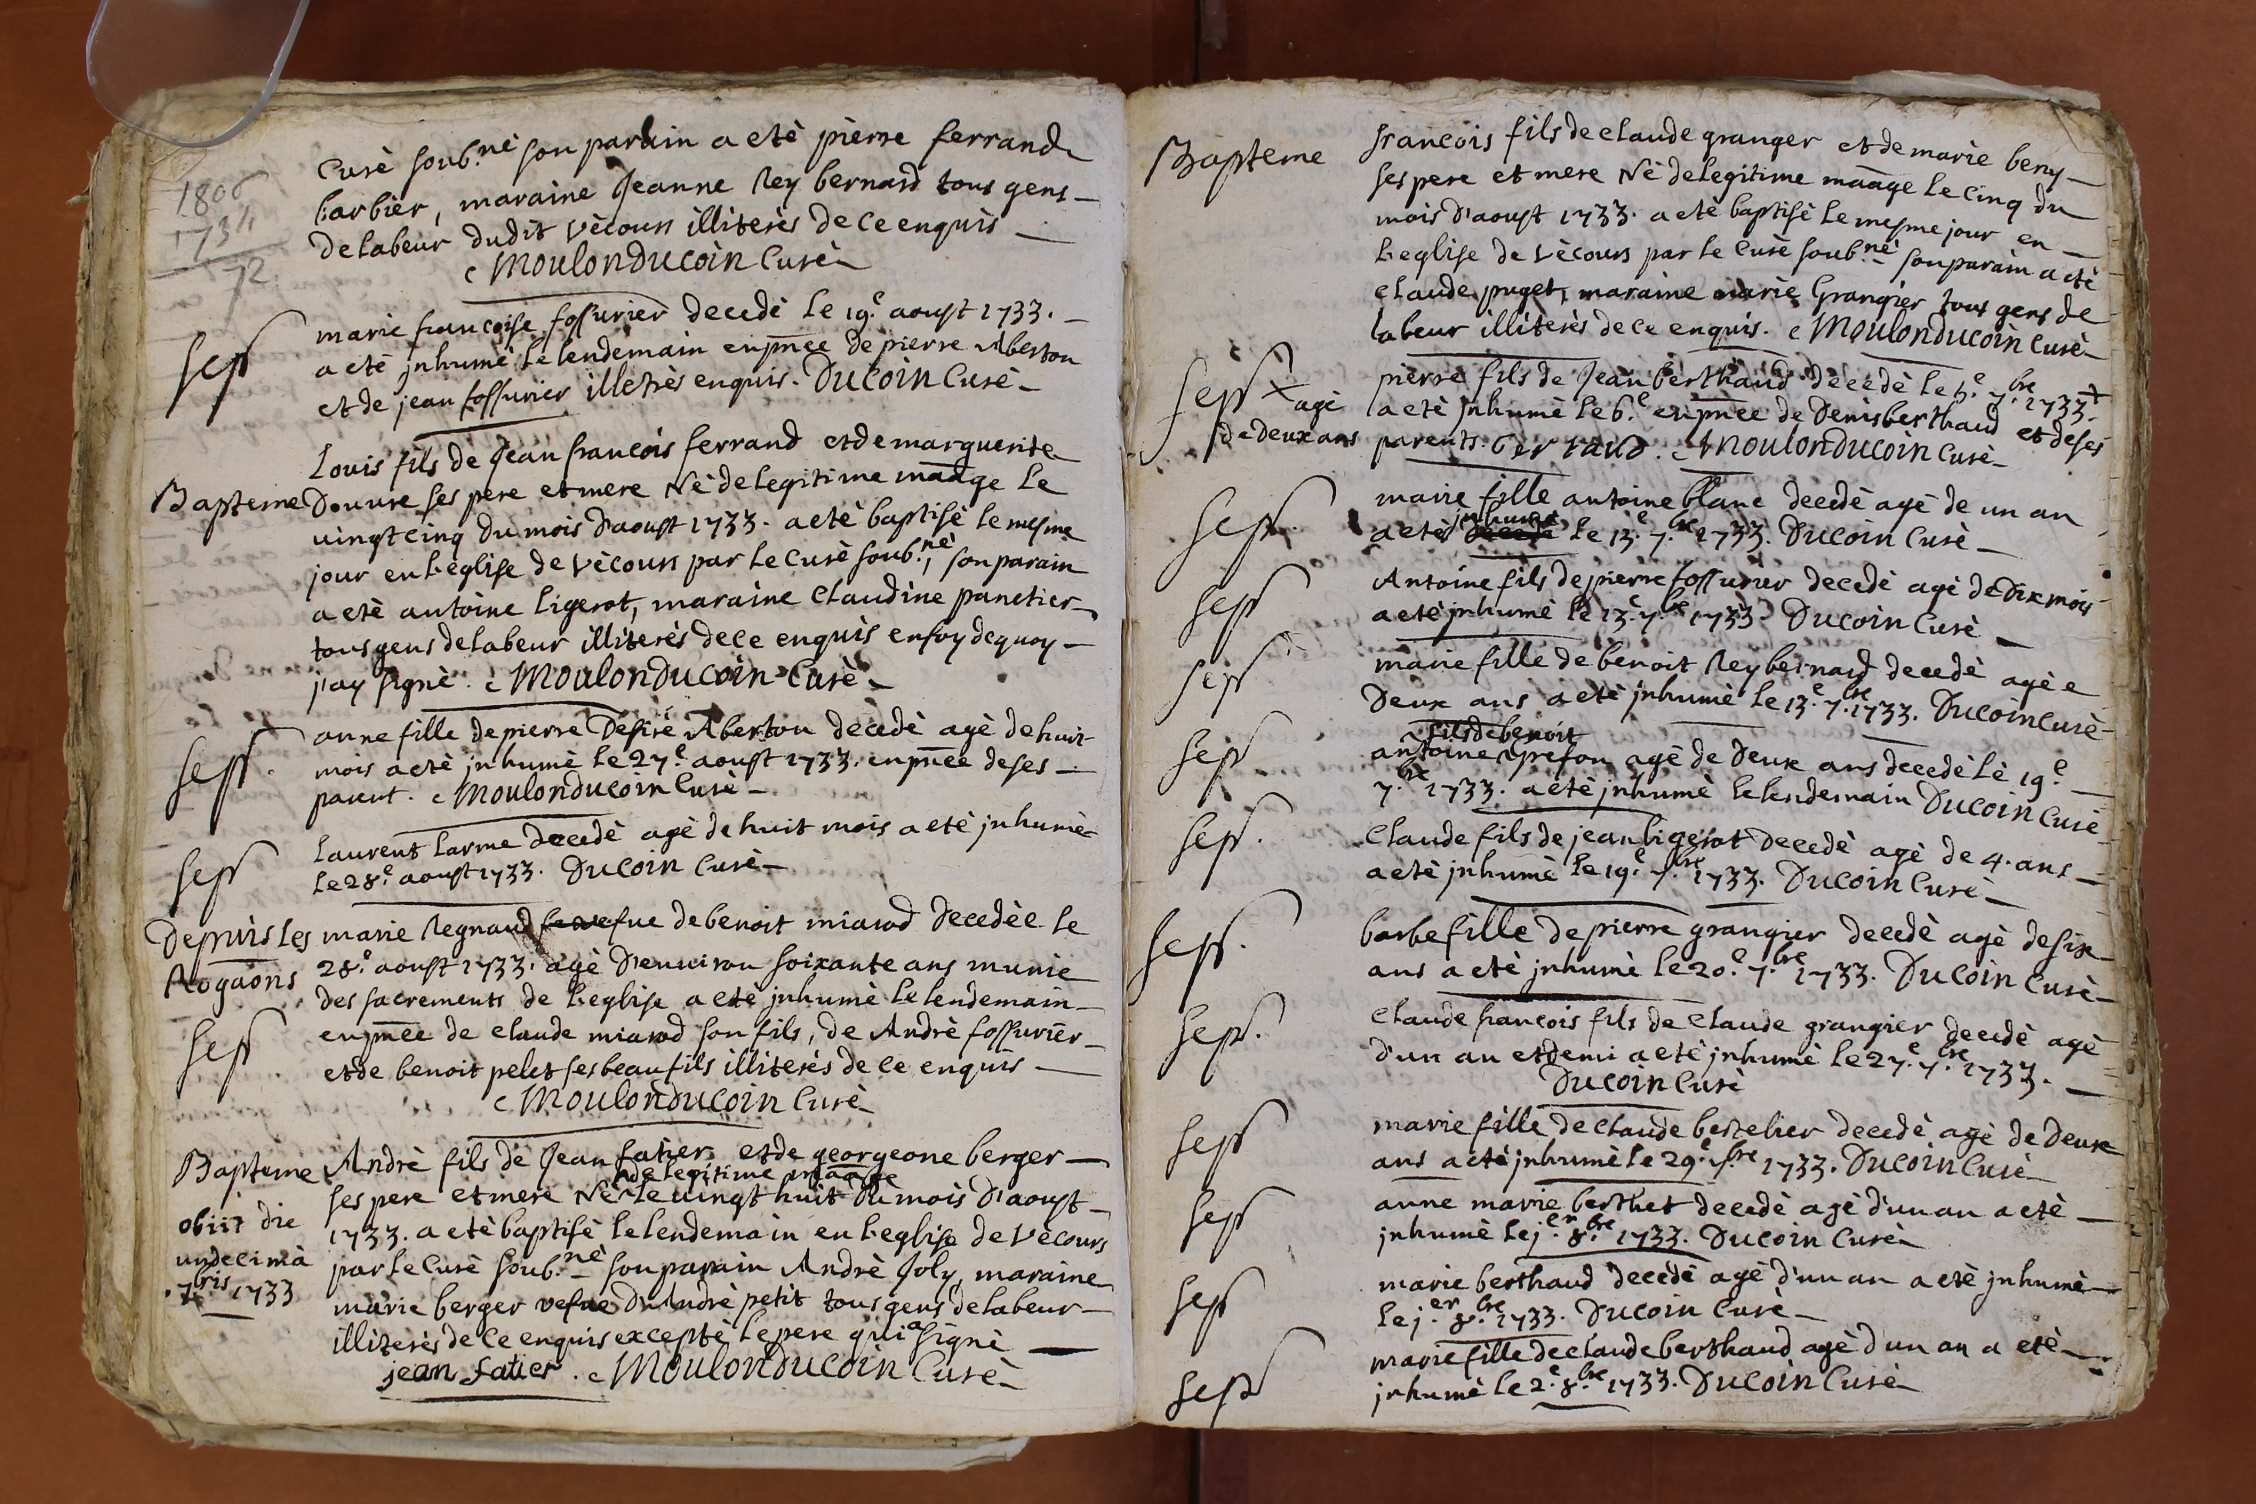 1806
1734
72
Curè soub.nè son parain a etè pierre ferrand
barbier, maraine Jeanne Rey bernard tous gens
de labeur dudit vècours illiterès de ce enquis
c Moulonducoin Curè
sep.r
marie francoise fossurier decedè le 19.e aoust 1733.
a etè jnhumè le lendemain en pnēe de pierre Aberton
et de jean fossurier illetrès enquis. Ducoin Curè
Bapteme
Louis fils de Jean francois ferrand et de marguerite
Douvre ses pere et mere Nè de legitime maāge le
vingt cinq du mois d'aoust 1733. a etè baptisè le mesme
jour en l'eglise de vècours par le Curè soub.nè, son parain
a etè antoine ligerot, maraine Claudine panetier
tous gens de labeur illiterès de ce enquis en foy de quoy
j'ay signè. c Moulonducoin Curè
sep.r
anne fille de pierre Desirè Aberton decedè agè de huit
mois a etè jnhumè le 27.e aoust 1733. en pnēe de ses
parent. c Moulonducoin Curè
sep.r
Laurent Larme decedè agè de huit mois a etè jnhumè
le 28.e aoust 1733. Ducoin Curè
Depuis les
Rogāons
sep.r
marie Regnaud vefue de benoit miarod decedèe le
28.e aoust 1733. agè d'enuiron soixante ans munie
des sacrements de l'eglise a etè jnhumè le lendemain
en pnēe de claude miarod son fils, de Andrè fossurier
et de benoit pelet ses beau fils illiterès de ce enquis
c Moulonducoin Curè
Bapteme
obiit die
undecimà
7bris 1733
Andrè fils de Jean fatier et de georgeone berger
de legitime maāge
ses pere et mere Nè le vingt huit du mois d'aoust
1733. a etè baptisè le lendemain en l'eglise de vècours
par le Curè soub.nè son parain Andrè Joly, maraine
marie berger vefue d'Andrè petit tous gens de labeur
illiterès de ce enquis exceptè le pere qui a signè
jean fatier. c Moulonducoin Curè
Bapteme
francois fils de claude granger et de marie beny
ses pere et mere Nè de legitime maāge le cinq du
mois d'aoust 1733. a etè baptisè le mesme jour en
l'eglise de vècours par le Curè soub.nè son parain a etè
claude puget, maraine marie Grangier tous gens de
labeur illitèrès de ce enquis. c Moulonducoin Curè
sep.r + agè
de deux ans
pierre fils de Jean berthaud decedè le 5.e 7.bre 1733 +
a etè jnhumè le 6.e en pnēe de Denis berthaud et de ses
parents. bertaud. c Moulonducoin Curè
sep.r
marie fille antoine blanc decedè agè de un an
jnhumè
a etè le 13.e 7.bre 1733. Ducoin Curè
sep.r
Antoine fils de pierre fossurier decedè agè de dix mois
a etè jnhumè le 13.e 7.bre 1733. Ducoin Curè
sep.r
marie fille de benoit Rey bernard decedè agèe
Deux ans a etè jnhumè le 13.e 7.bre 1733. Ducoin Curè
sep.r
fils de benoit
antoine prefon agè de Deux ans decedè le 19.e
7.bre 1733. a etè jnhumè le lendemain Ducoin Curè
sep.r
Claude fils de jean ligerot decedè agè de 4. ans
a etè jnhumè le 19.e 7.bre 1733. Ducoin Curè
sep.r
barbe fille de pierre grangier decedè agè de six
ans a etè jnhumè le 20.e 7.bre 1733. Ducoin Curè
sep.r
Claude francois fils de claude grangier decedè agè
d'un an et demi a etè jnhumè le 27.e 7.bre 1733.
Ducoin Curè
sep.r
marie fille de claude bertelier decedè agè de Deux
ans a etè jnhumè le 29.e 7.bre 1733. Ducoin Curè
sep.r
anne marie berthet decedè agè d'un an a etè
jnhumè le j.er 8.bre 1733. Ducoin Curè
sep.r
marie berthaud decedè agè d'un an a etè jnhumè
le j.er 8.bre 1733. Ducoin Curè
sep.r
marie fille de claude berthaud agè d'un an a etè
jnhumè le 2.e 8.bre 1733. Ducoin Curè